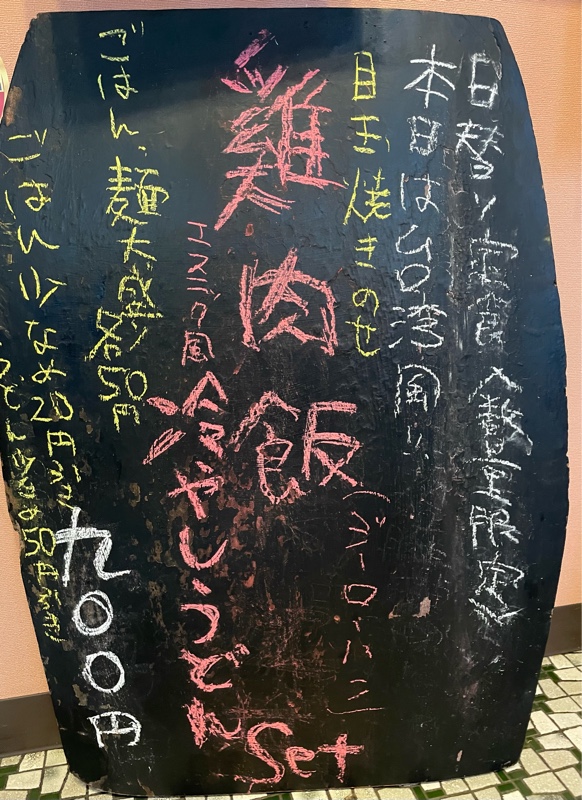 日替り定食〈数量限定〉
本日は台湾風!!
目玉焼きのせ
雞肉飯(ジーローハン)
エスニック風冷やしうどんSet
ごはん、麺大盛各50円
九00円
ごはん少なめ20円びき
うどん少なめ50円びき